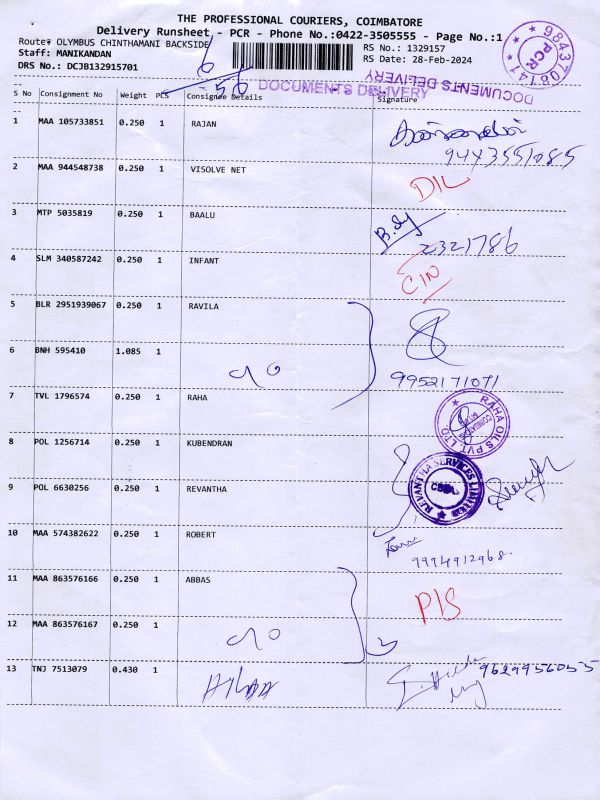 THE PROFESSIONAL COURIERS, COIMBATORE
Delivery Runsheet - PCR - Phone No.:0422-3505555 - Page No.:1
Route: OLYMBUS CHINTHAMANI BACKSIDE
RS No.: 1329157
Staff: MANIKANDAN
RS Date: 28-Feb-2024
DRS No.: DCJB132915701
6
56
DOCUMENTS DELIVERY
DOCUMENTS DELIVERY
9843708141
PCR
S No Consignment No Weight PCS Consignee Details Signature
1 MAA 105733851 0.250 1 RAJAN
9443551085
2 MAA 944548738 0.250 1 VISOLVE NET DIL
3 MTP 5035819 0.250 1 BAALU
2321786
4 SLM 340587242 0.250 1 INFANT CIN
5 BLR 2951939067 0.250 1 RAVILA
6 BNH 595410 1.085 1
9952171071
7 TVL 1796574 0.250 1 RAHA RAHA OILS PVT. LTD.
8 POL 1256714 0.250 1 KUBENDRAN
9 POL 6630256 0.250 1 REVANTHA REVANTHA SERVICES LIMITED
10 MAA 574382622 0.250 1 ROBERT
9994912968
11 MAA 863576166 0.250 1 ABBAS PIS
12 MAA 863576167 0.250 1
13 TNJ 7513079 0.430 1 9629956055